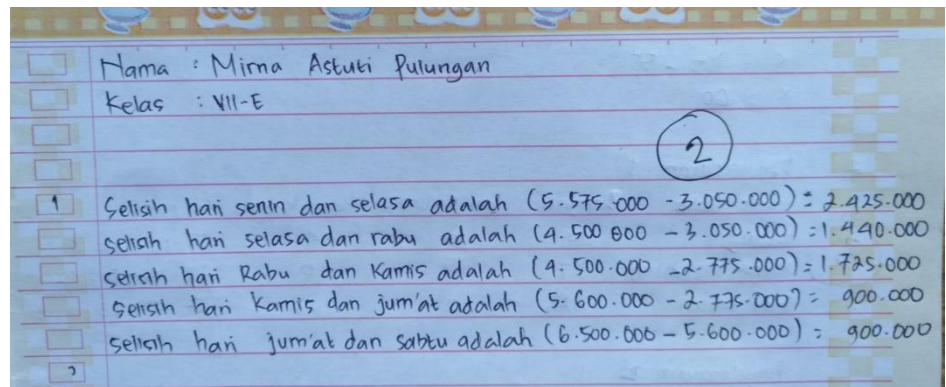 Nama : Mirna Astuti Pulungan
Kelas : VII-E
2
1 Selisih hari senin dan selasa adalah (5.575.000 - 3.050.000) = 2.425.000
selisih hari selasa dan rabu adalah (4.500.000 - 3.050.000) = 1.440.000
selisih hari Rabu dan Kamis adalah (4.500.000 - 2.775.000) = 1.725.000
selisih hari Kamis dan jum'at adalah (5.600.000 - 2.775.000) = 900.000
selisih hari jum'at dan sabtu adalah (6.500.000 - 5.600.000) = 900.000